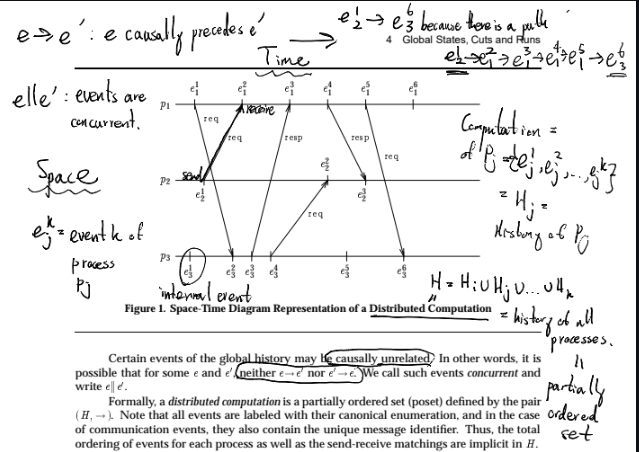 e → e' : e causally precedes e' → e½ → e₃⁶ because there is a path
4 Global States, Cuts and Runs
e₂¹ → e₁² → e₁³ → e₁⁴ → e₁⁵ → e₃⁶
Time
e||e' : events are concurrent.
Space
e_j^k = event k of process Pj
e₁¹ e₁² e₁³ e₁⁴ e₁⁵ e₁⁶
p1
receive
req req resp resp req
send
p2
e₂¹ e₂² e₂³
req
p3
e₃¹ e₃² e₃³ e₃⁴ e₃⁵ e₃⁶
internal event
Computation =
of Pj = {e_j¹, e_j², ..., e_j^k}
= Hj =
History of Pj
H = Hi ∪ Hj ∪ ... ∪ Hn
"
= history of all
processes.
"
partially
ordered
set
Figure 1. Space-Time Diagram Representation of a Distributed Computation
Certain events of the global history may be causally unrelated. In other words, it is
possible that for some e and e', neither e → e' nor e' → e. We call such events concurrent and
write e || e'.
Formally, a distributed computation is a partially ordered set (poset) defined by the pair
(H, →). Note that all events are labeled with their canonical enumeration, and in the case
of communication events, they also contain the unique message identifier. Thus, the total
ordering of events for each process as well as the send-receive matchings are implicit in H.